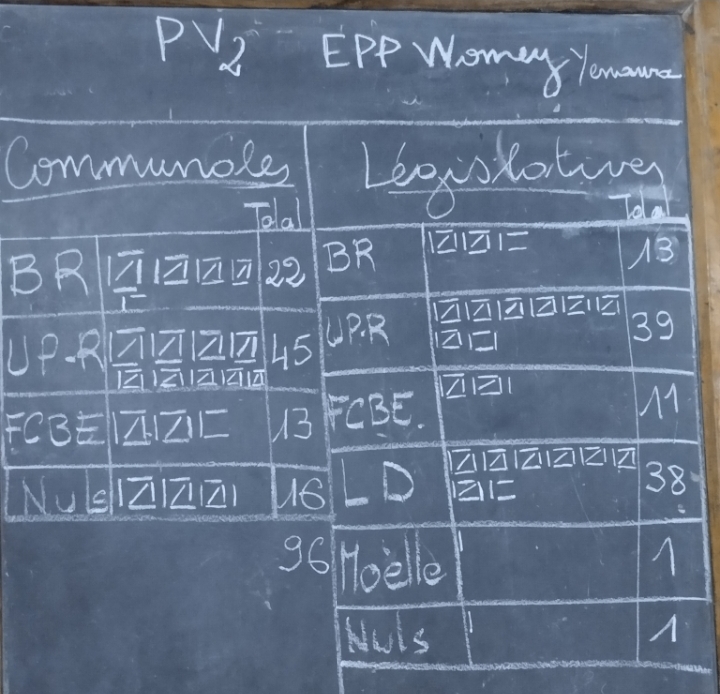 PV2 EPP Womey Yemawa
Communales
Total
BR 22
UP-R 45
FCBE 13
Nuls 16
96
Législatives
Total
BR 13
UP.R 39
FCBE. 11
LD 38
Moëlle 1
Nuls 1